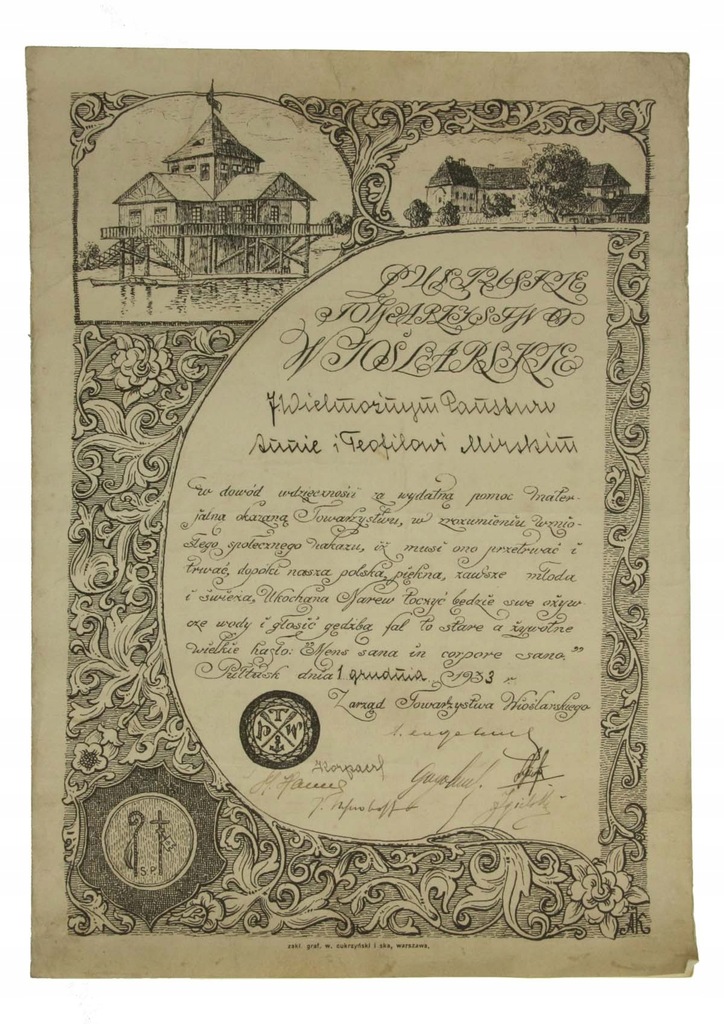 PUŁTUSKIE
TOWARZYSTWO
WIOŚLARSKIE
JWielmożnym Państwu
Annie i Teofilowi Mirskim
w dowód wdzięczności za wydatną pomoc mater-
jalną okazaną Towarzystwu, w zrozumieniu wznio-
słego, społecznego nakazu, iż musi ono przetrwać i
trwać, dopóki nasza polska, piękna, zawsze młoda
i świeża, Ukochana Narew toczyć będzie swe ożyw-
cze wody i głosić gędźbą fal to stare a żywotne
wielkie hasło: "Mens sana in corpore sano."
Pułtusk dnia 1 grudnia 1933 r.
Zarząd Towarzystwa Wioślarskiego
P T W
S.P.
AK
zakł. graf. w. cukrzyński i ska, warszawa.